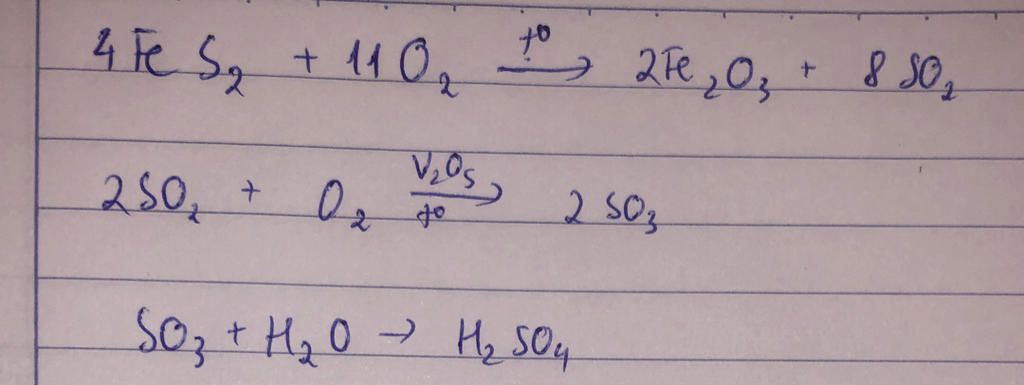 4FeS₂ + 11O₂ \xrightarrow{t°} 2Fe₂O₃ + 8SO₂
2SO₂ + O₂ \xrightarrow[t°]{V₂O₅} 2SO₃
SO₃ + H₂O → H₂SO₄